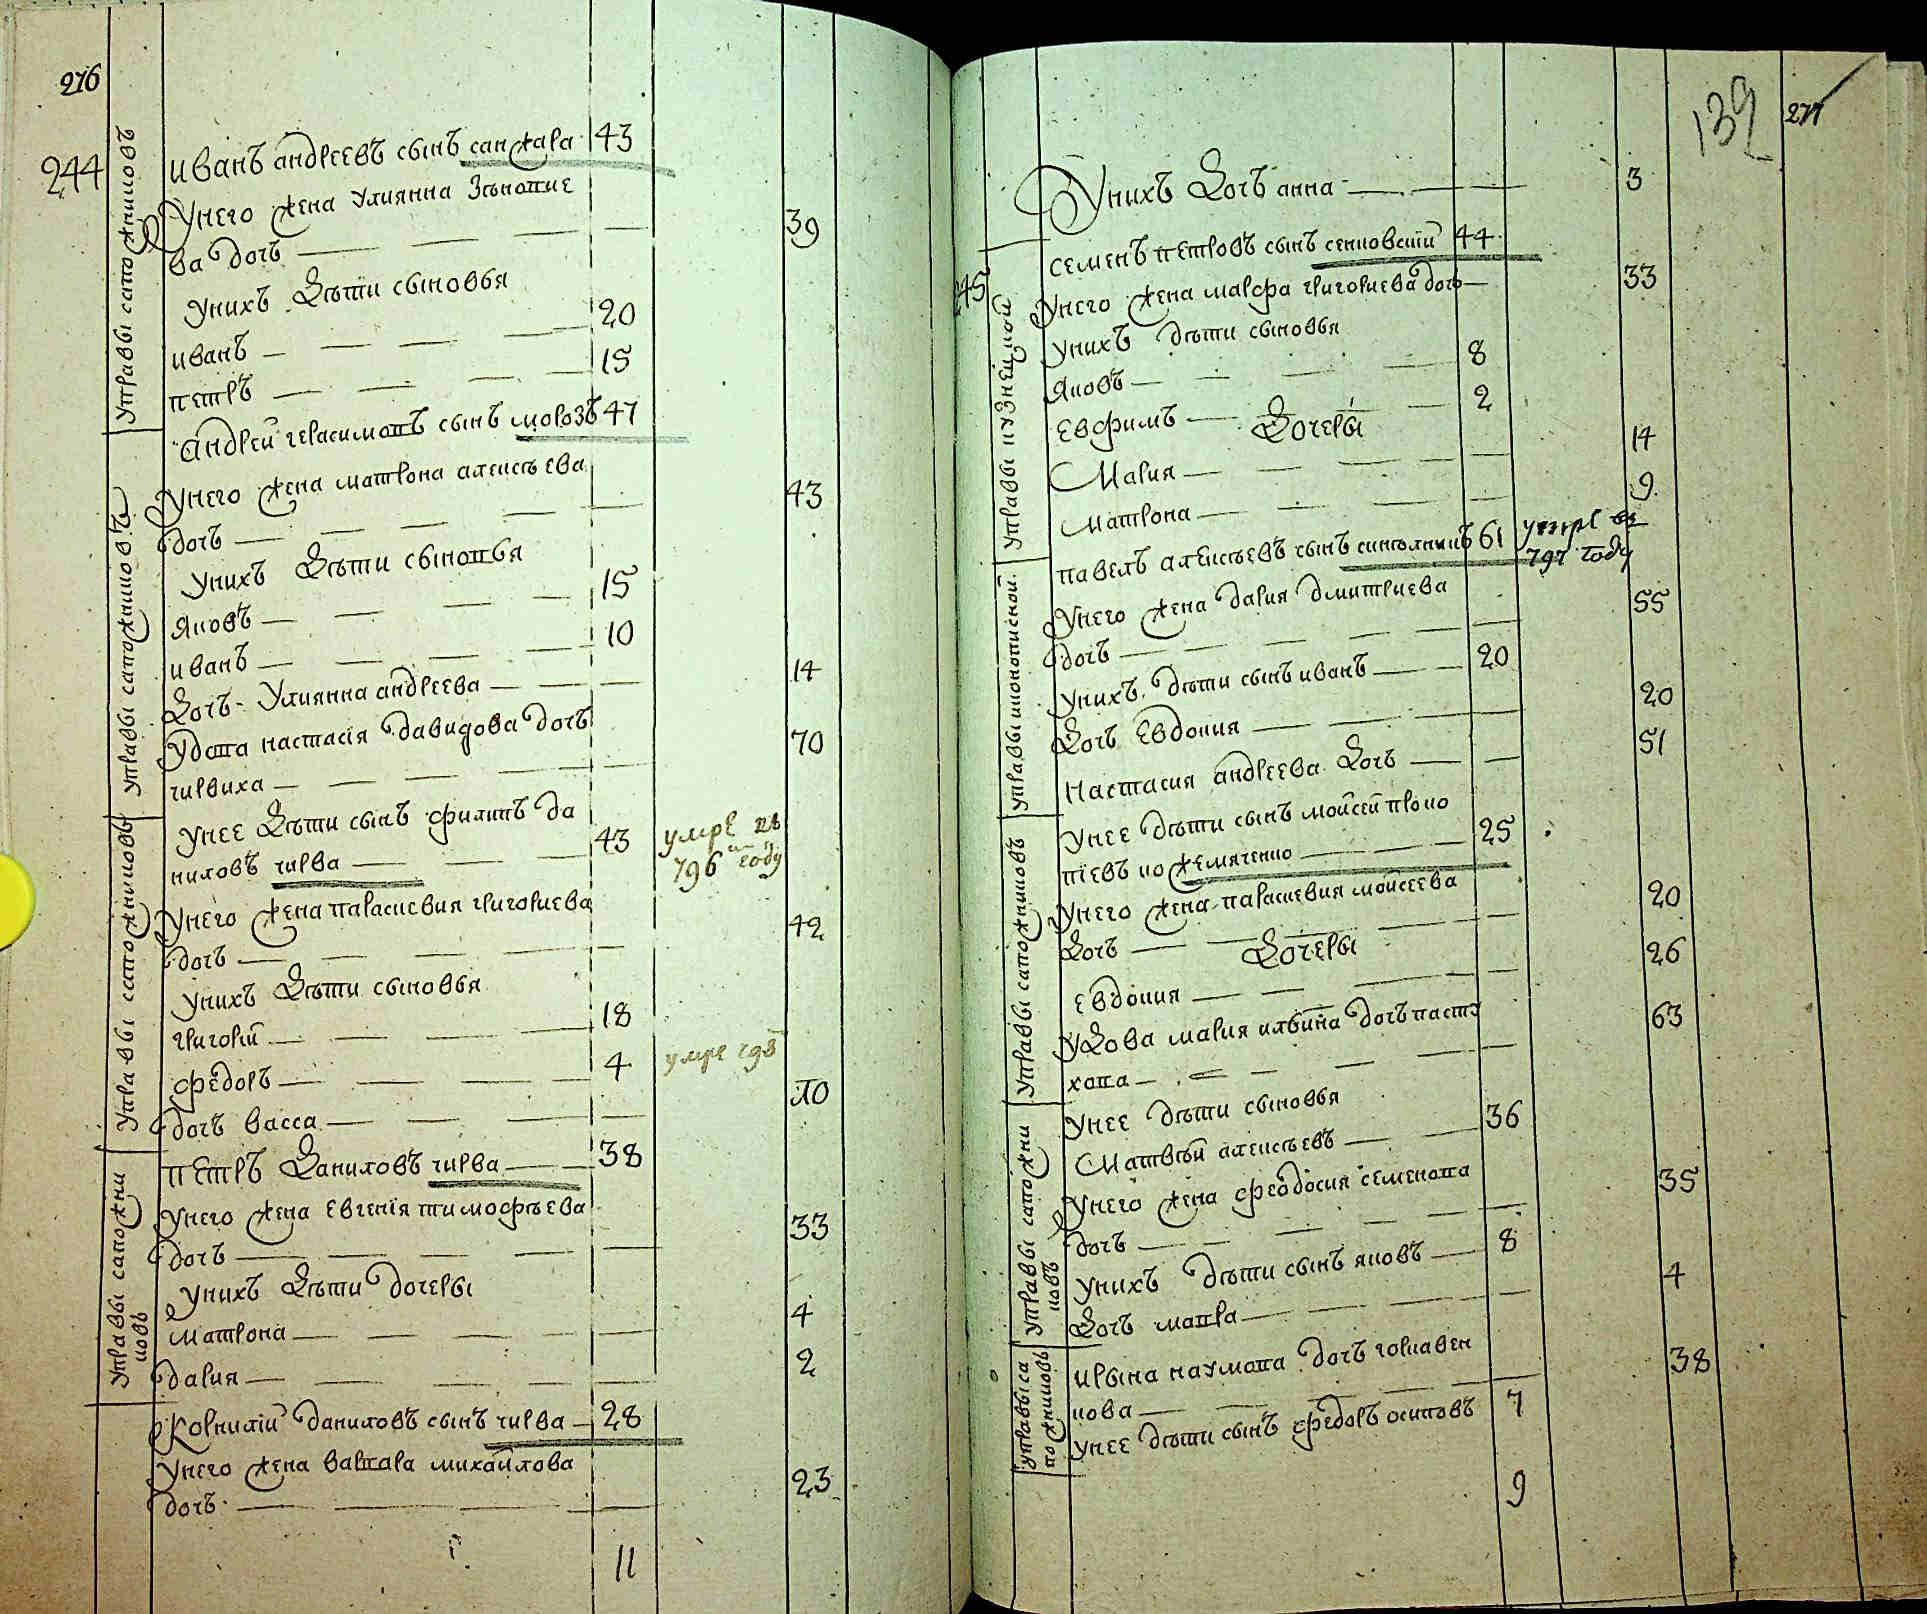 276
244
Управы сапожниковъ
иванъ андреевъ сынъ санжара 43
Унего жена Улиянна Зѣнопие
ва дочь 39
Унихъ Дѣти сыновья
иванъ 20
петръ 15
андрей герасимовъ сынъ морозъ 47
Управы сапожниковъ
Унего жена матрона алексѣева
дочь 43
Унихъ Дѣти сыновья
яковъ 15
иванъ 10
Дочь Улиянна андреева 14
Удова настасія давидова дочь
чирвиха 70
Управы сапожниковъ
Унее Дѣти сынъ филипъ да
ниловъ чирва 43 умре въ
796 году
Унего жена параскевия григориева
дочь 42
Унихъ Дѣти сыновья
григорій 18
федоръ 4 умре 798
дочь васса 10
Управы сапожни
ковъ
петръ Даниловъ чирва 38
Унего жена Евгенія тимофѣева
дочь 33
Унихъ Дѣти дочеры
матрона 4
дария 2
Корнилій даниловъ сынъ чирва 28
Унего жена варвара михайлова
дочь 23
11
139
277
Унихъ Дочь анна 3
245
Управы кузнецкой
семенъ петровъ сынъ сенковскій 44
Унего жена марфа григориева дочь 33
Унихъ дѣти сыновья
яковъ 8
Евфимъ 2
Дочеры
Мария 14
матрона 9
Управы иконописной
павелъ алексѣевъ сынъ 61 умре въ
797 году
Унего жена дария дмитриева
дочь 55
Унихъ дѣти сынъ иванъ 20
Дочь Евдокия 20
Настасия андреева Дочь 51
Управы сапожниковъ
Унее дѣти сынъ мойсей проко
піевъ кожемяченко 25
Унего жена параскевия мойсеева
Дочь 20
Дочеры
Евдокия 26
Удова мария ильина дочь пасту
хова 63
Управы сапожни
ковъ
Унее дѣти сыновья
Матвѣй алексѣевъ 36
Унего жена феодосия семенова
дочь 35
Унихъ дѣти сынъ яковъ 8
Дочь мавра 4
Управы са
пожниковъ
ирына наумова дочь горкавен
кова 38
Унее дѣти сынъ федоръ осиповъ 7
9